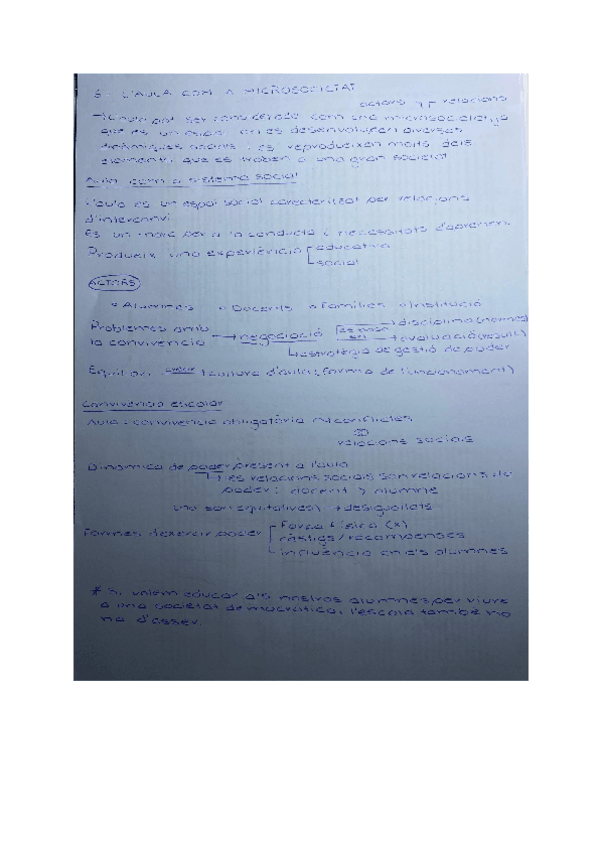 6. L'AULA COM A MICROSOCIETAT
actors y relacions
→ L'aula pot ser considerada com una microsocietat ja
que és un espai on es desenvolupen diverses
dinàmiques socials i es reprodueixen molts dels
elements que es troben a una gran societat
Aula com a sistema social
L'aula es un espai social caracteritzat per relacions
d'intercanvi.
És un marc per a la conducta i necessitats d'aprenent.
Produeix una experiència educativa
social
ACTORS
* Alumnes • Docents • Famílies • Institució
Problemes amb → negociació es basa en → disciplina (normes)
la convivència → avaluació (result)
↳ estratègia de gestió de poder
Equilibri crear 1 cultura d'aula (forma de funcionament)
Convivència escolar
Aula: convivència obligatòria → conflictes
relacions socials
Dinàmica de poder present a l'aula
↳ es relacions socials son relacions de
poder: docent > alumne
(no son equitatives) → desigualtats
Formes d'exercir poder força física (x)
càstigs/recompenses
influència en els alumnes
* Si volem educar als nostres alumnes per viure
a una societat democràtica, l'escola també ho
ha d'esser.